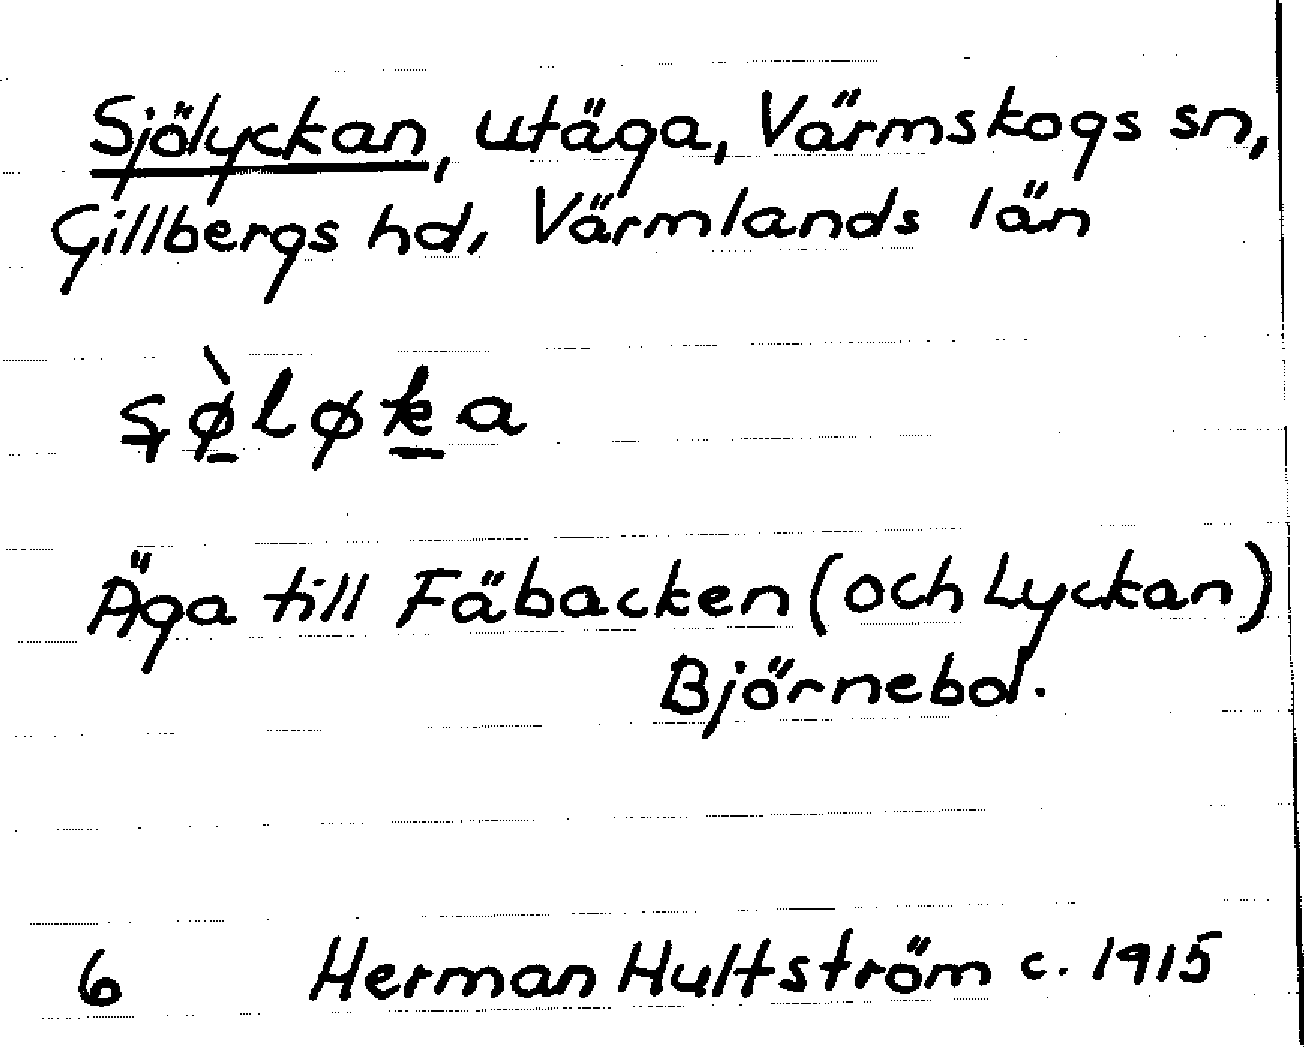 Sjölyckan, utäga, Värmskogs sn,
Gillbergs hd, Värmlands län
ʂø̀løka
Äga till Fäbacken (och Lyckan)
Björnebol.
6 Herman Hultström c. 1915